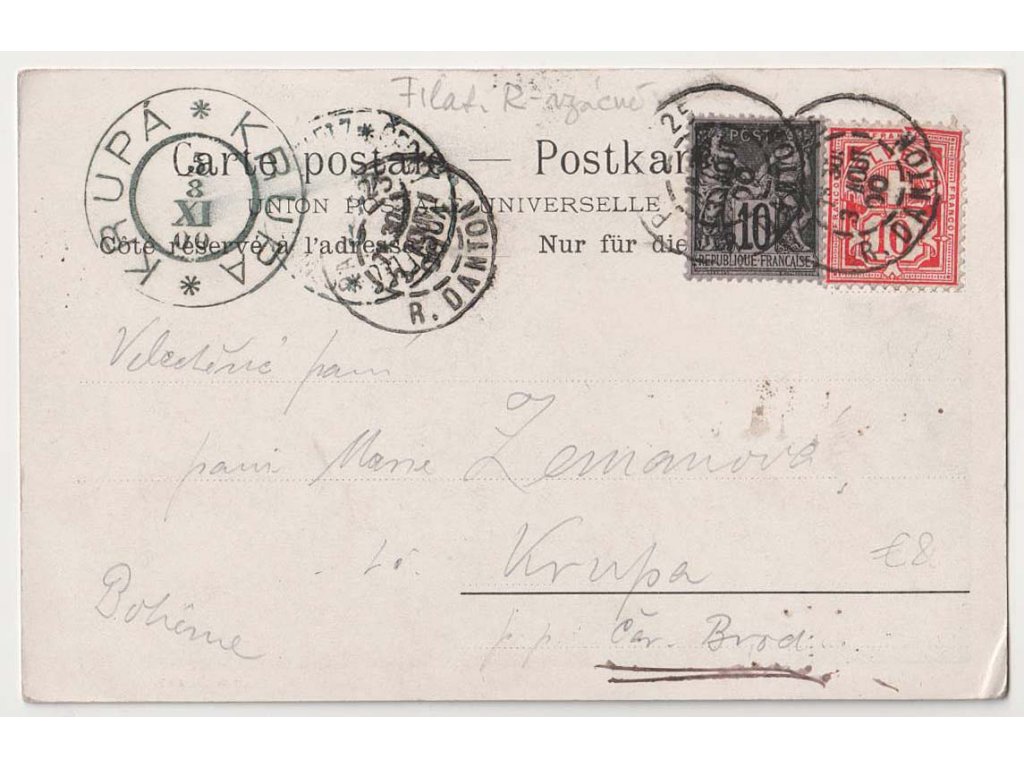 Filat. R-vzácné
Carte postale — Postkarte
UNION POSTALE UNIVERSELLE
Côté réservé à l'adresse. Nur für die
KRUPÁ * KRUPA *
8
XI
00
R. DANTON
R. DANTON
POSTES
10
REPUBLIQUE FRANÇAISE
FRANCO
10
Velectěná paní
paní Marie Zemanová
Krupa
€8
Bohême
p. p. Čes. Brod